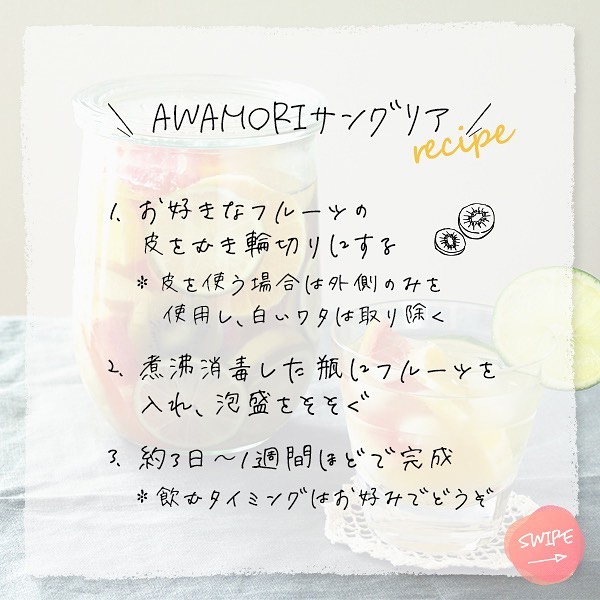 AWAMORIサングリア
recipe
1. お好きなフルーツの
皮をむき輪切りにする
* 皮を使う場合は外側のみを
使用し、白いワタは取り除く
2. 煮沸消毒した瓶にフルーツを
入れ、泡盛をそそぐ
3. 約3日〜1週間ほどで完成
* 飲むタイミングはお好みでどうぞ
SWIPE